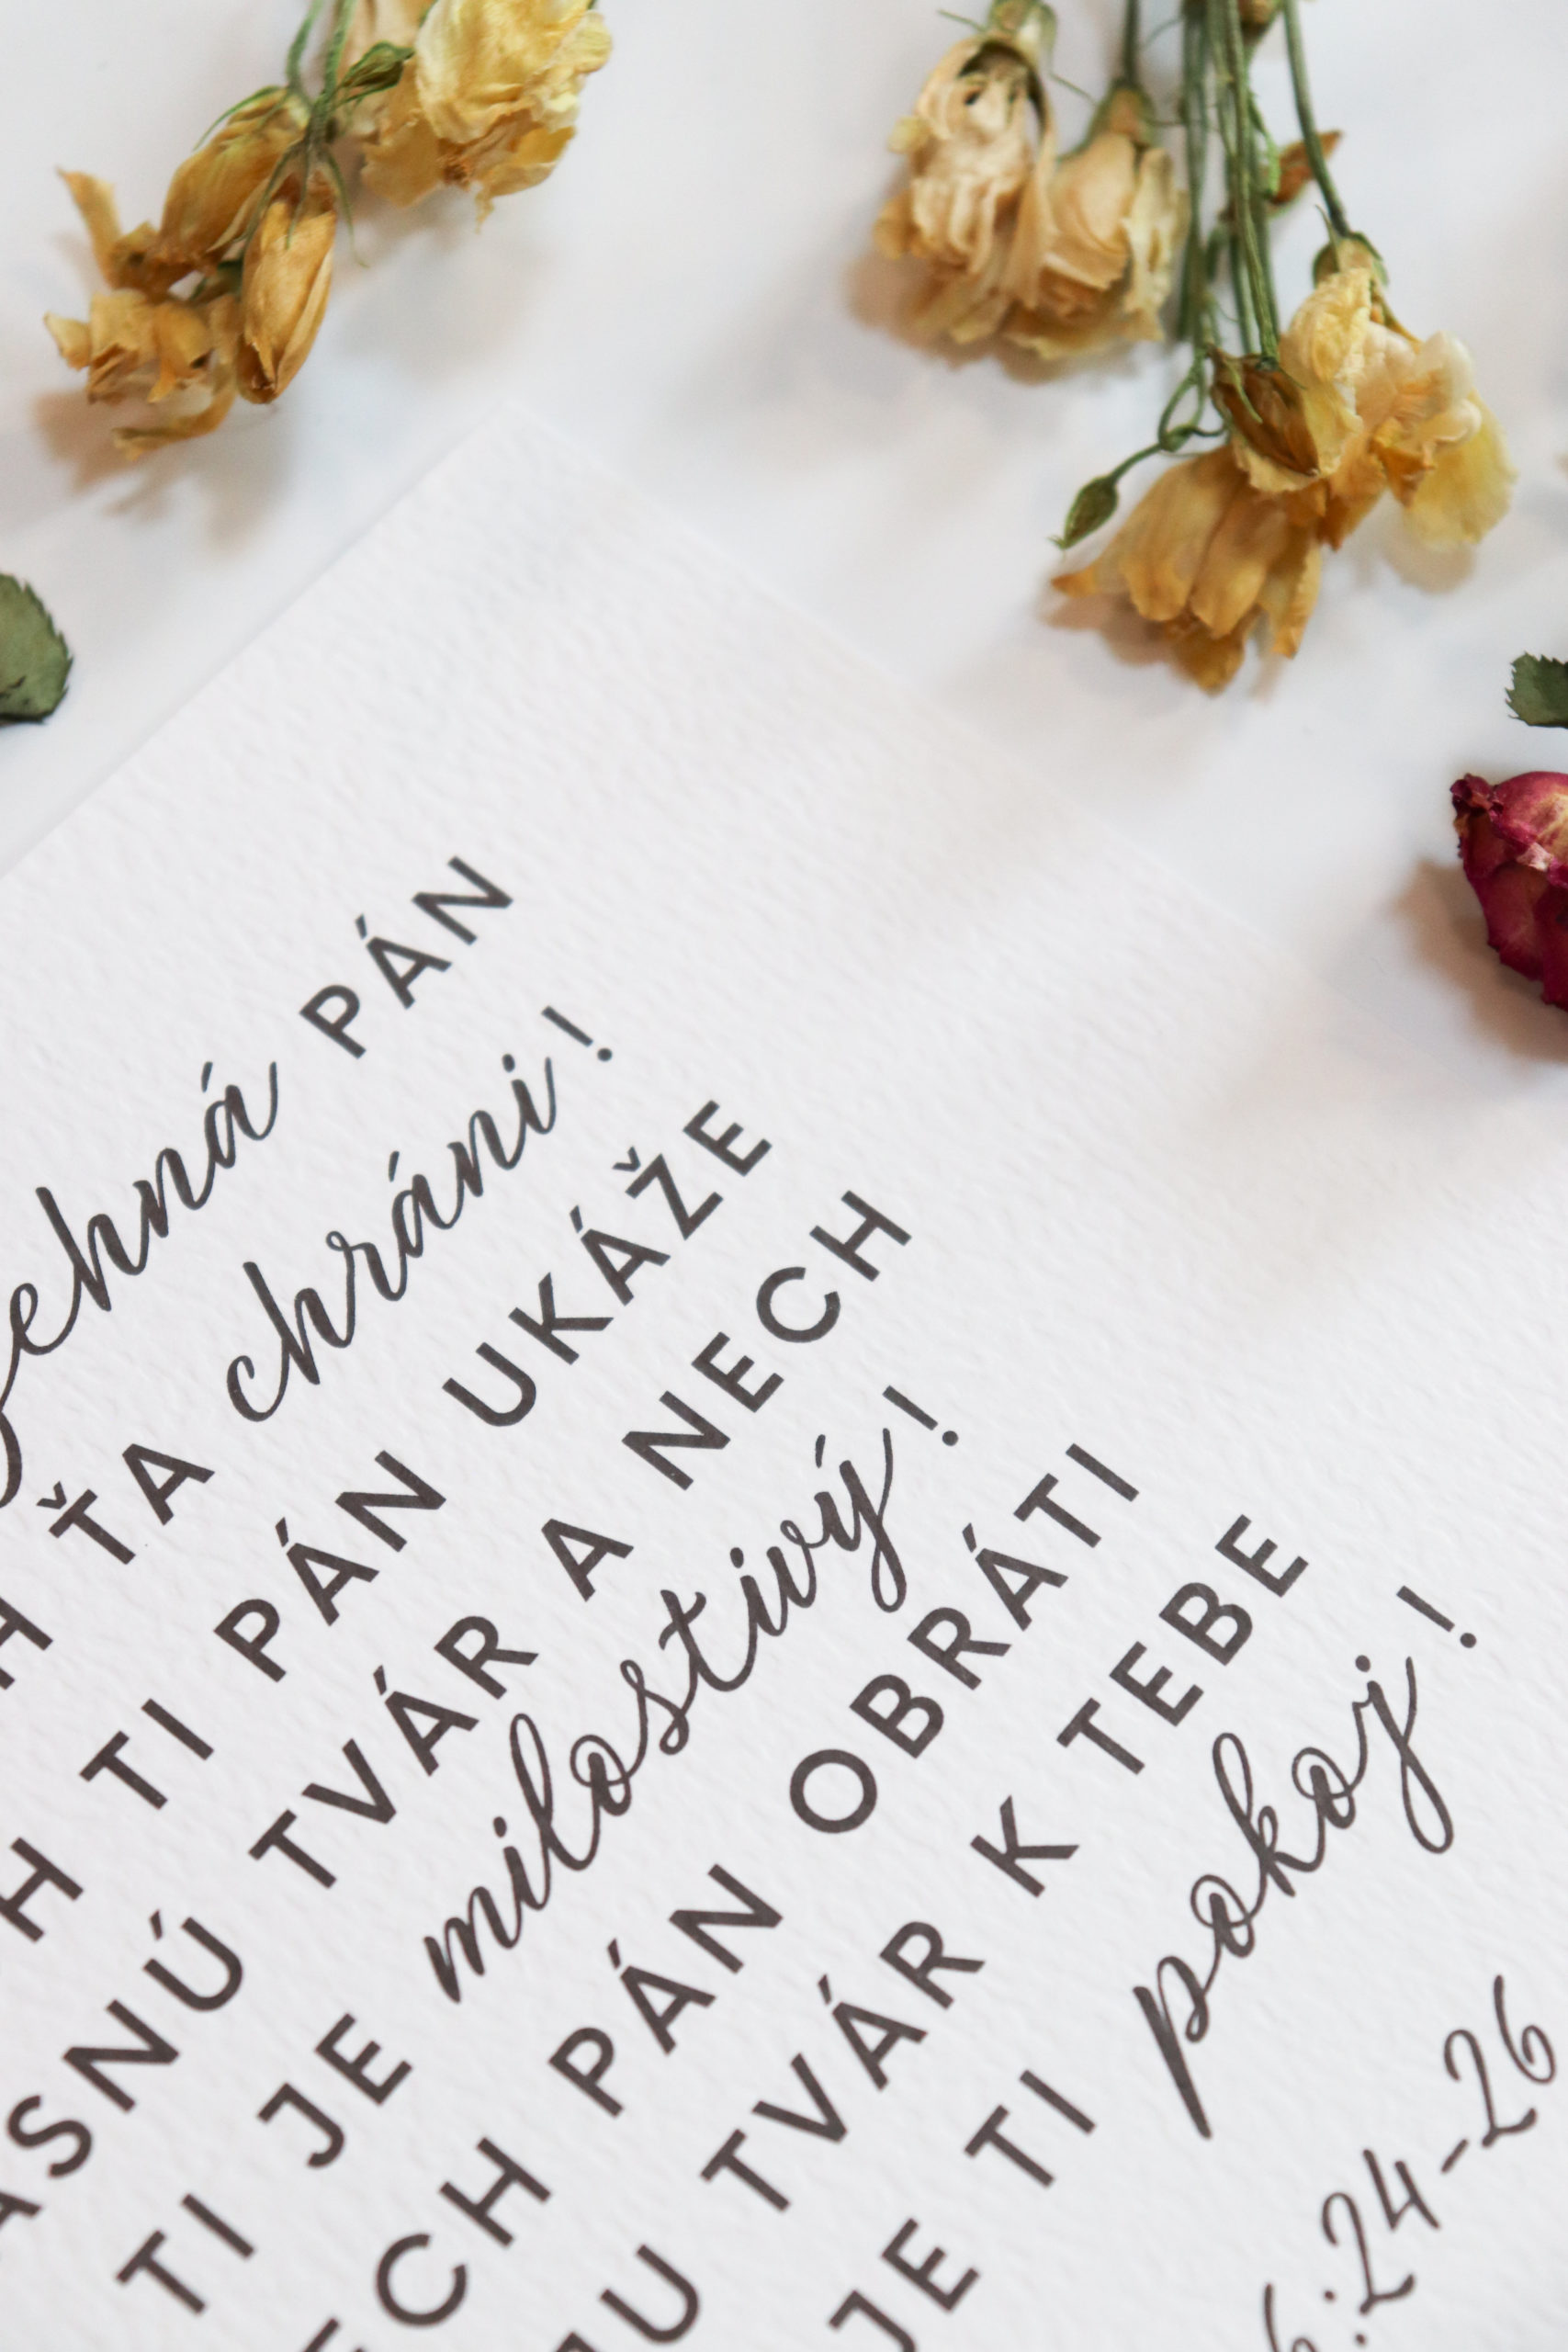 PÁN
ŤA chráni!
TI PÁN UKÁŽE
TVÁR A NECH
TI JE milostivý!
PÁN OBRÁTI
TVÁR K TEBE
JE TI pokoj!
6:24-26